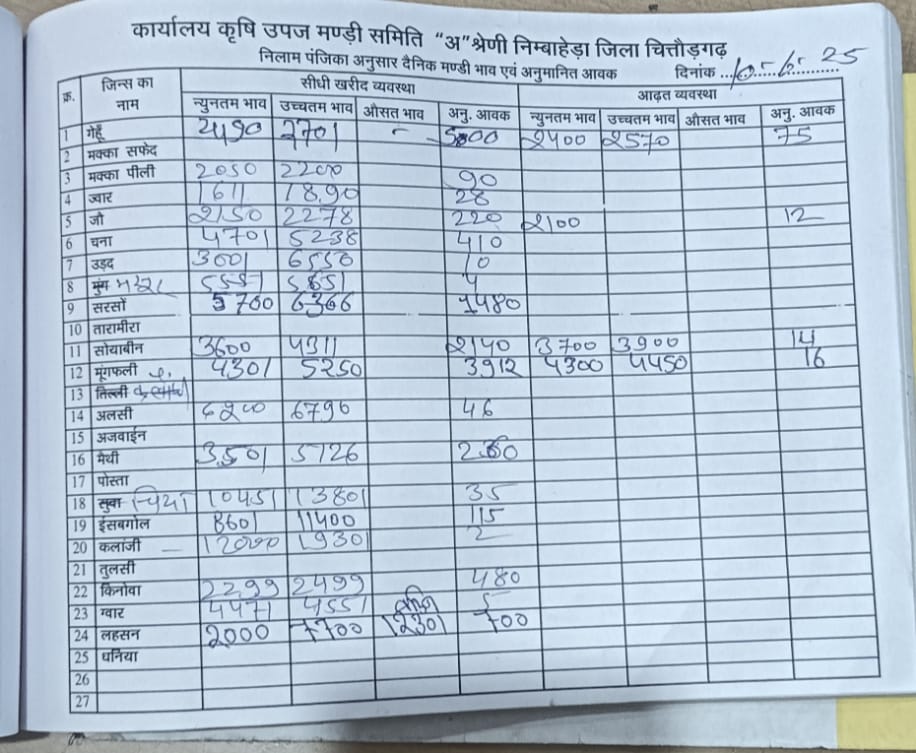 कार्यालय कृषि उपज मण्डी समिति "अ" श्रेणी निम्बाहेड़ा जिला चित्तौड़गढ़
निलाम पंजिका अनुसार दैनिक मण्डी भाव एवं अनुमानित आवक दिनांक 10-6-25
क्र. जिन्स का नाम सीधी खरीद व्यवस्था आढ़त व्यवस्था
न्युनतम भाव उच्चतम भाव औसत भाव अनु. आवक न्युनतम भाव उच्चतम भाव औसत भाव अनु. आवक
1 गेहूँ 2701 - 5000 2400 2570 75
2 मक्का सफेद
3 मक्का पीली 2050 2200 90
4 ज्वार 1611 1890 28
5 जौ 2150 2278 220 2100 12
6 चना 4701 5238 410
7 उड़द 3001 6550 10
8 मुंग 5651 4
9 सरसों 5700 6366 1480
10 तारामीरा
11 सोयाबीन 3600 4311 2140 3700 3900 14
12 मूंगफली 4301 5250 3912 4300 4450 16
13 तिल्ली
14 अलसी 6200 6796 46
15 अजवाईन
16 मैथी 3501 5726
17 पोस्ता
18 सुवा चिया 10451 13801 35
19 ईसबगोल 8601 11400 115
20 कलांजी 12000 19301 2
21 तुलसी
22 किनोवा 2299 2499 480
23 ग्वार 4471 4551 5
24 लहसन 2000 7700 12301 700
25 धनिया
26
27